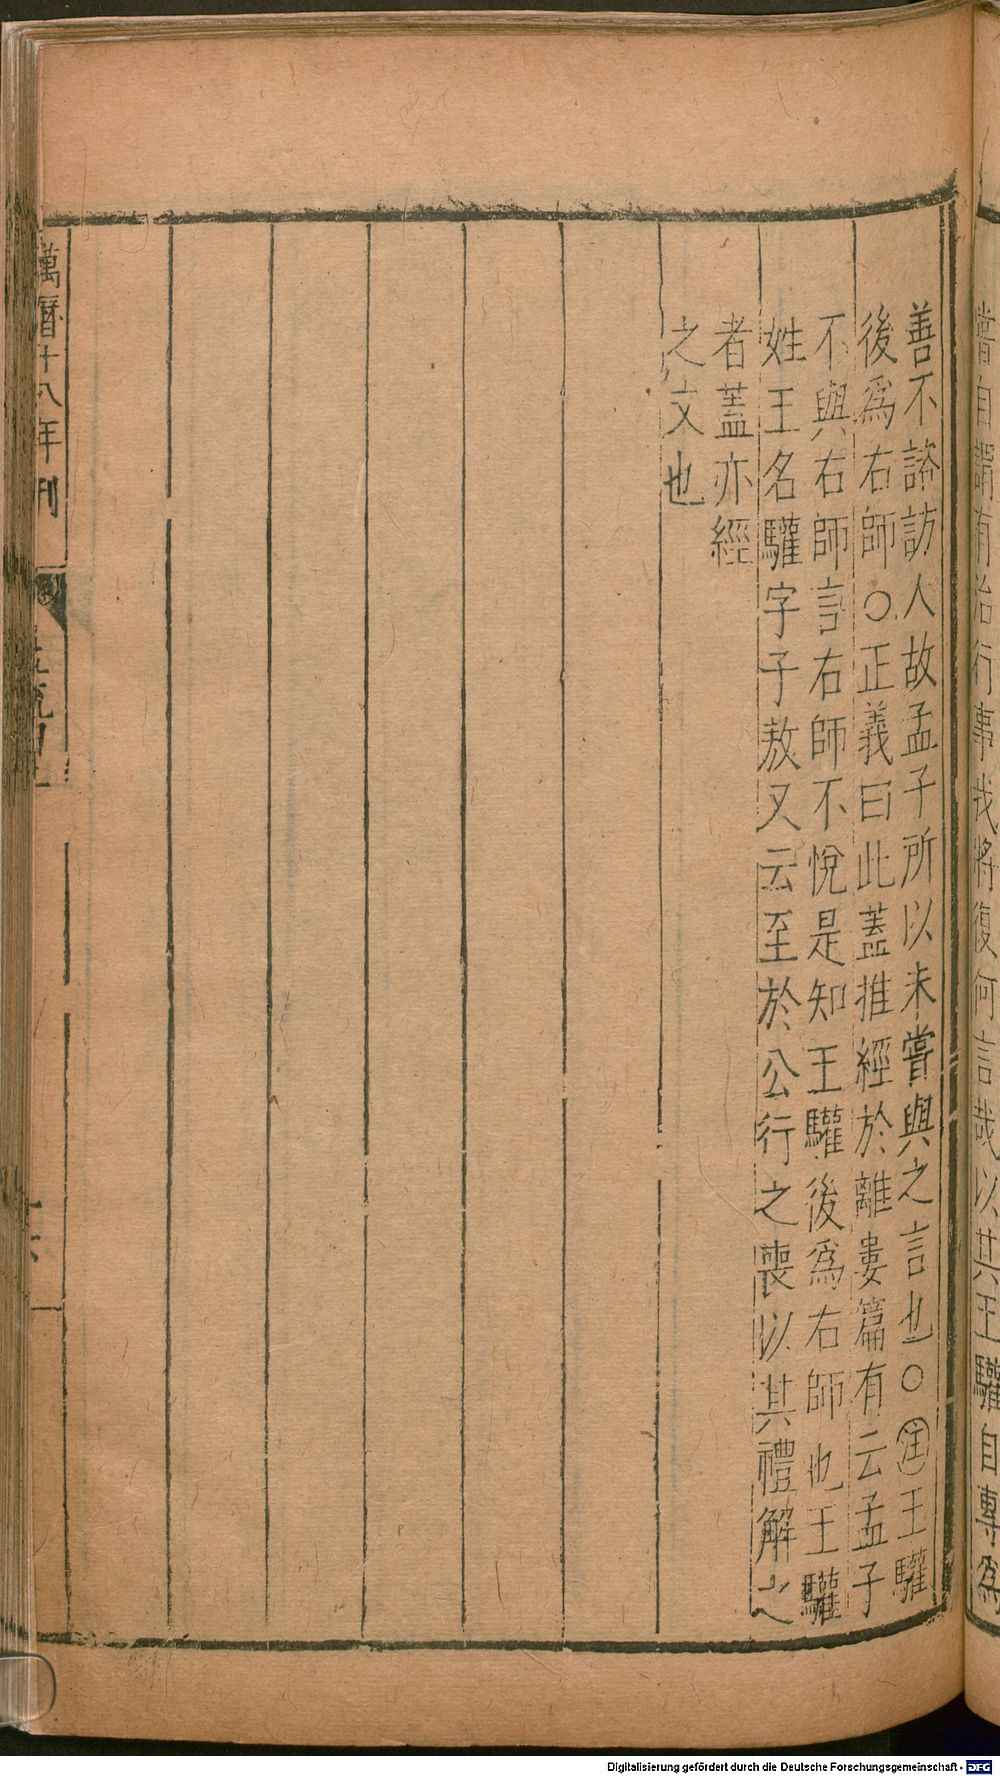 嘗自謂有治行事我將復何言哉以其王驩自專爲
善不諮訪人故孟子所以未嘗與之言也○注王驩
後爲右師○正義曰此蓋推經於離婁篇有云孟子
不與右師言右師不悅是知王驩後爲右師也王驩
姓王名驩字子敖又云至於公行之喪以其禮解之
者蓋亦經
之文也
萬曆十八年刊
Digitalisierung gefördert durch die Deutsche Forschungsgemeinschaft - DFG